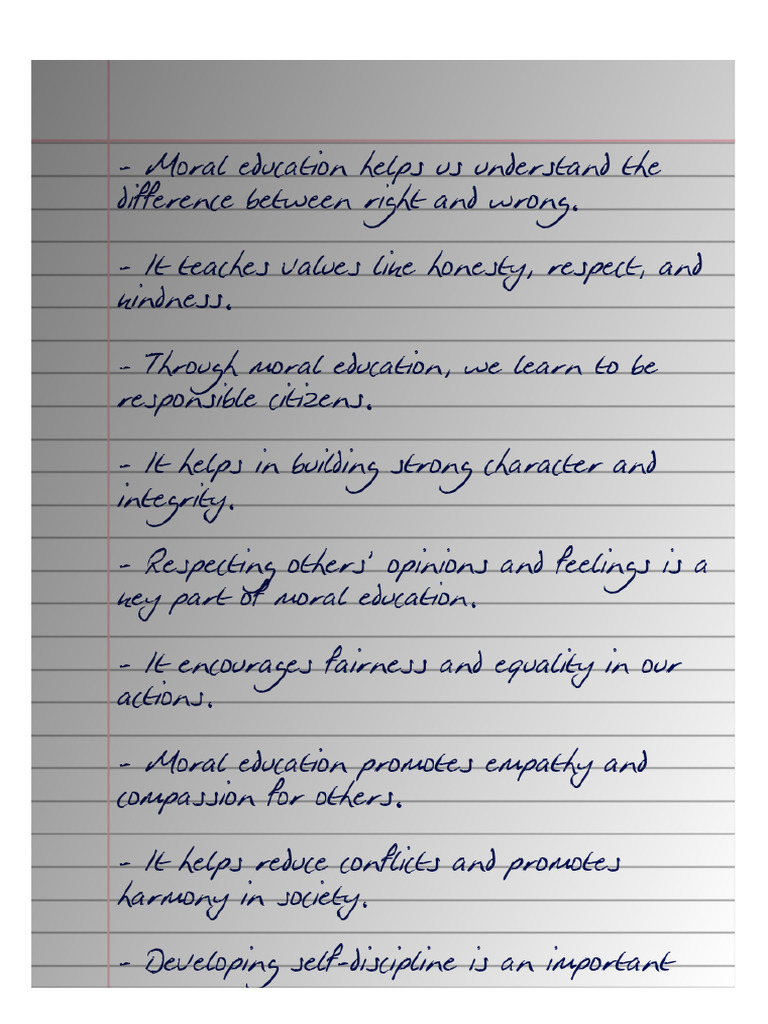 - Moral education helps us understand the
difference between right and wrong.
- It teaches values like honesty, respect, and
kindness.
- Through moral education, we learn to be
responsible citizens.
- It helps in building strong character and
integrity.
- Respecting others' opinions and feelings is a
key part of moral education.
- It encourages fairness and equality in our
actions.
- Moral education promotes empathy and
compassion for others.
- It helps reduce conflicts and promotes
harmony in society.
- Developing self-discipline is an important